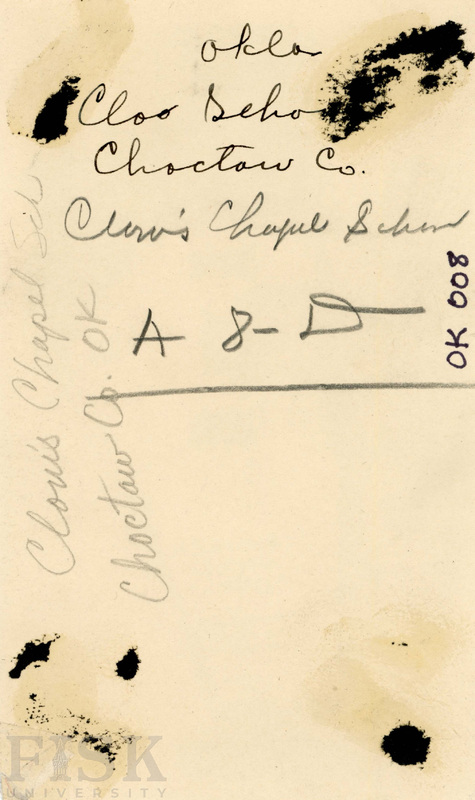 Okla
Cloo Scho
Choctaw Co.
Clow's Chapel School
A 8-D
OK 008
Clow's Chapel Sch
Choctaw Co. OK
FISK
UNIVERSITY